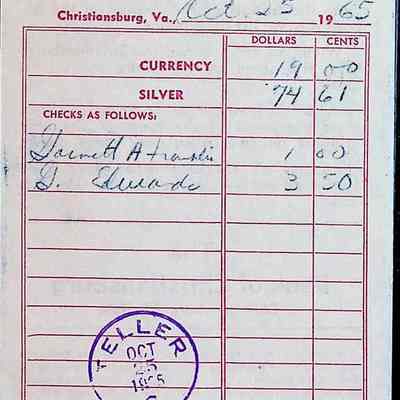 Christiansburg, Va., Oct. 25 1965
DOLLARS CENTS
CURRENCY 19 00
SILVER 74 61
CHECKS AS FOLLOWS:
Garnett A Franklin 1 00
G. Edwards 3 50
TELLER
OCT
25
1965